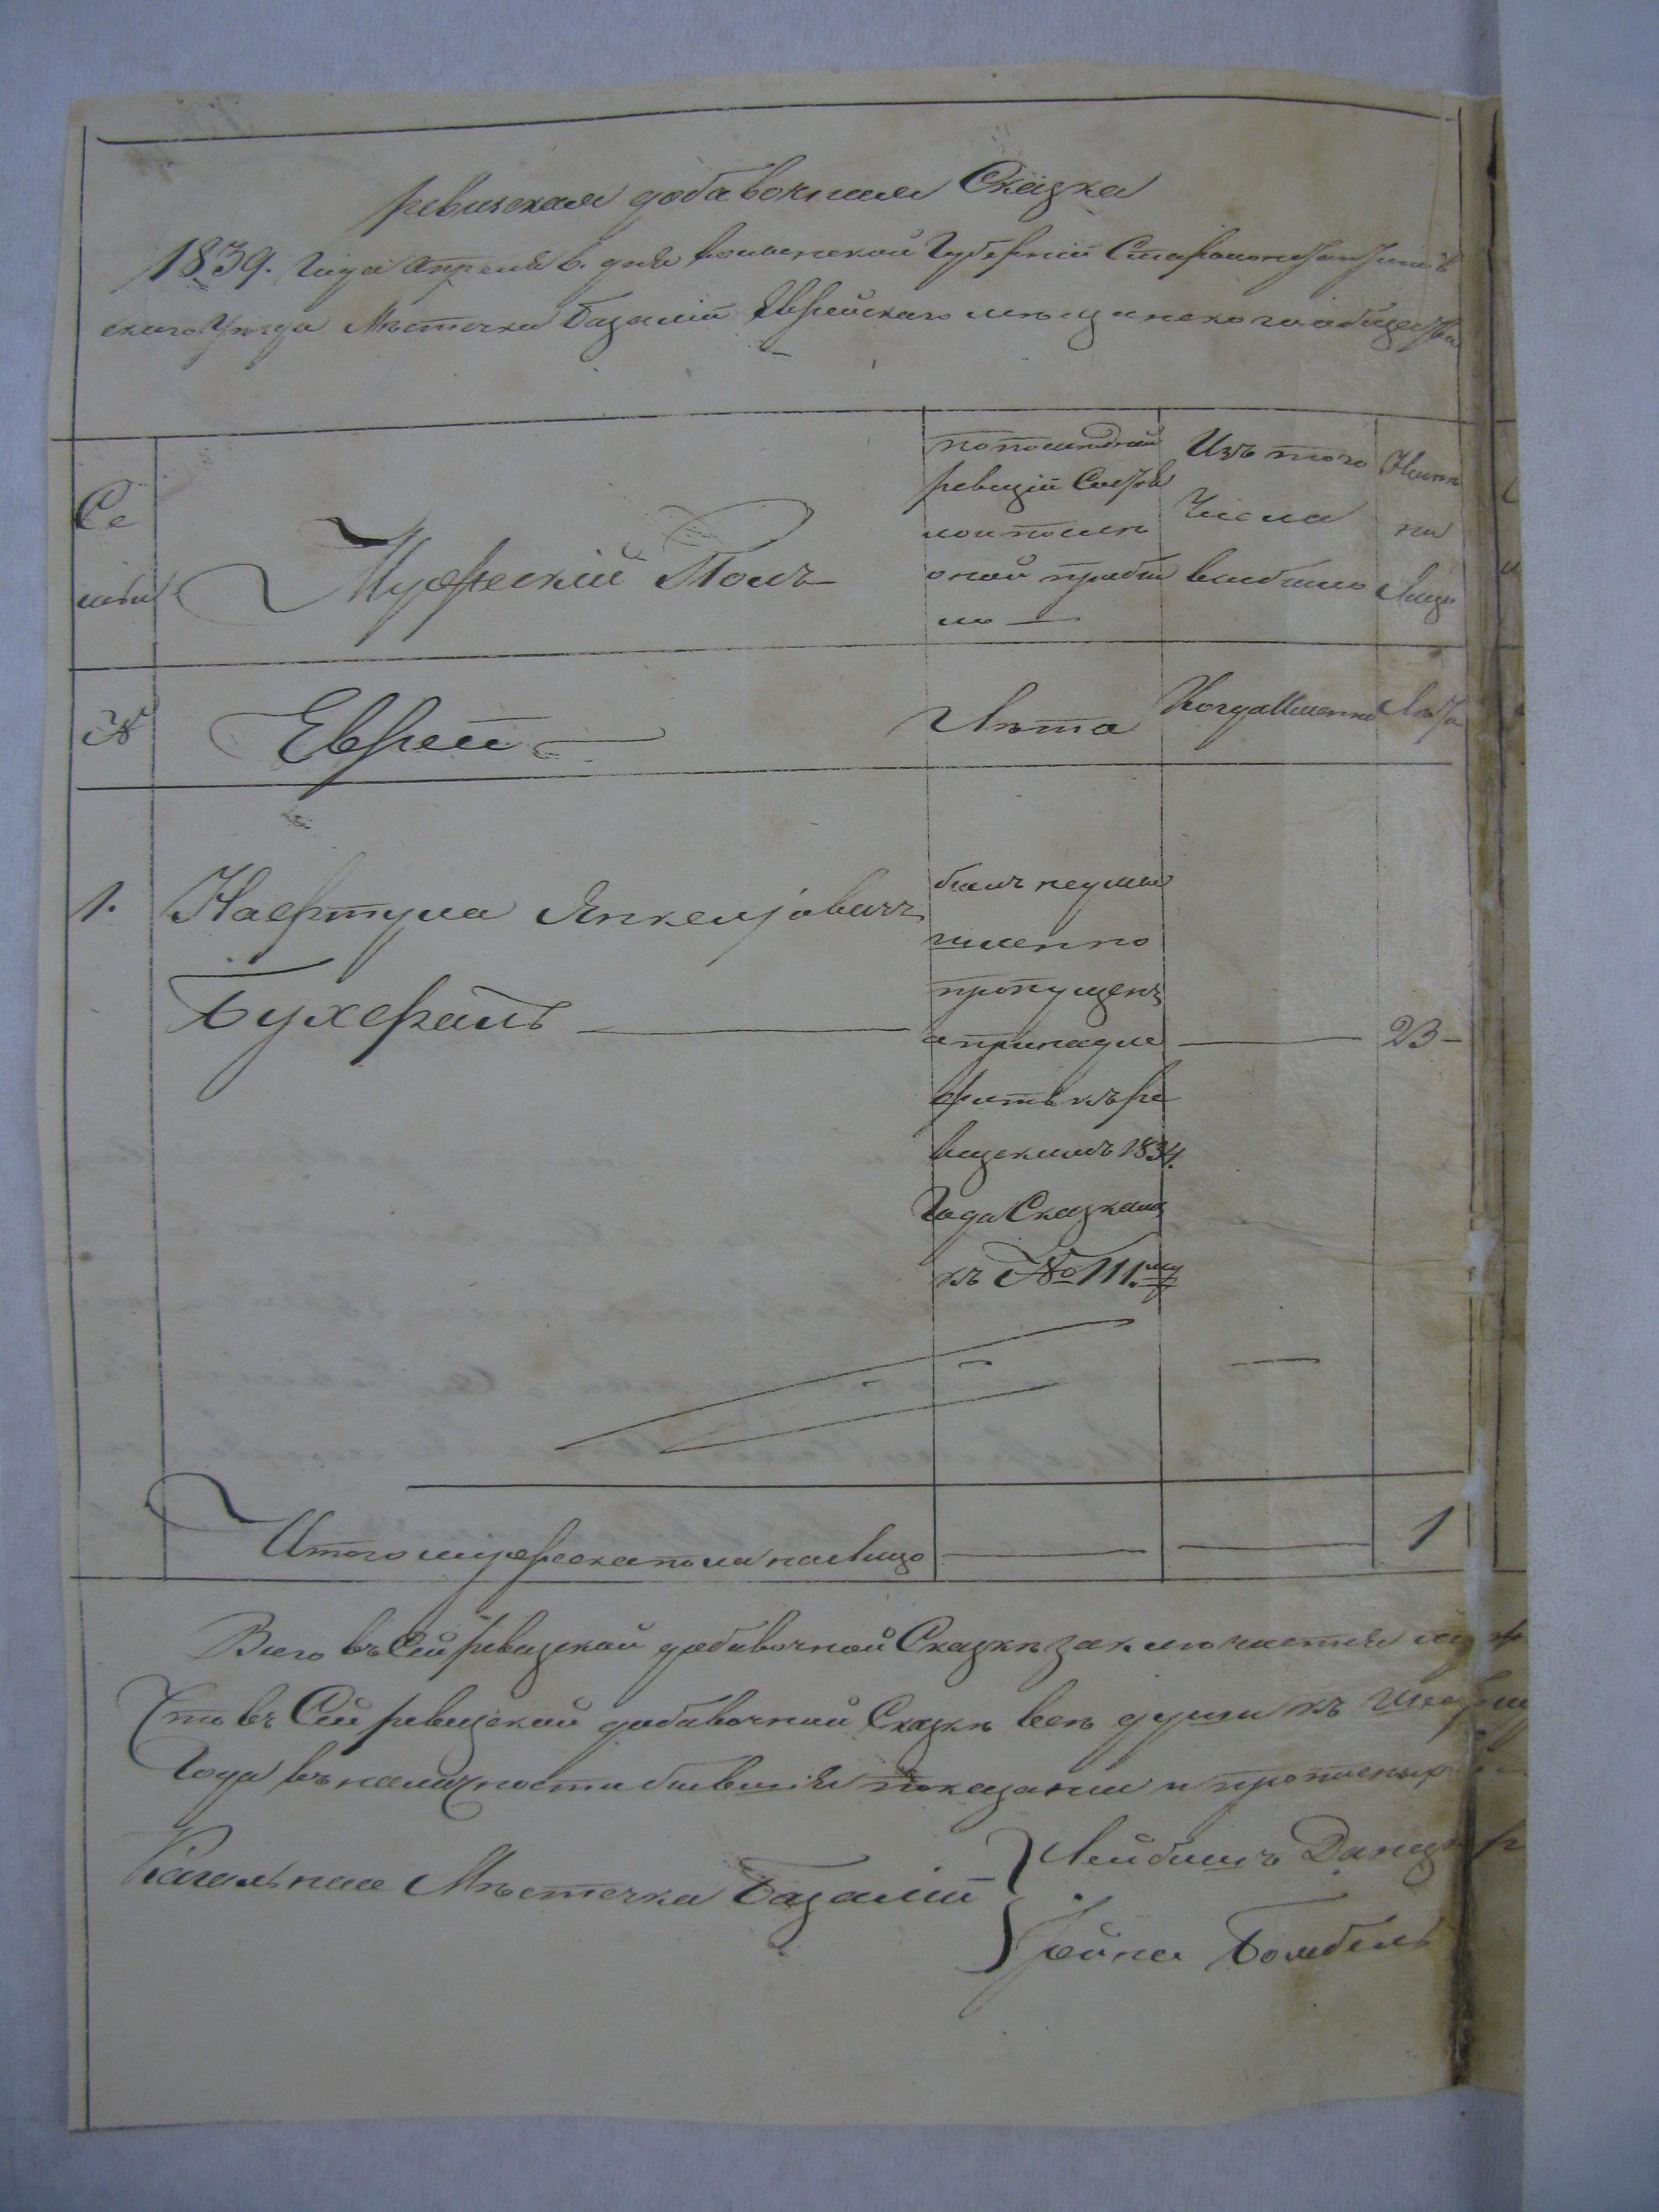 ревизская добавочная Сказка
1839. Года Апреля 6. дня волынской Губернии Староконстантинов
скаго Уезда Местечка Базалии Еврейскаго мещанскаго общества
Се
мьи
Мужеский Полъ
по последней
ревизии Состоя
ло и после
оной прибы
ло
Изъ того
Числа
выбыло
Ныне
на
Лицо
№
Евреи
Лета
Когда Именно
Лета
1. Нафтула Янкелјовичъ
Бухералъ
былъ неумы
шленно
пропущенъ
а принадле
житъ къ ре
визскимъ 1834.
Года Сказкамъ
къ № 111.му
23
Итого мужеска пола на лицо 1
Всего въ Сей ревизской добавочной Сказке заключается
Что въ Сей ревизской добавочной Сказке все души къ
Года въ наличности бывшия показаны и прописныхъ
Кагальные Местечка Базалии
Лейбишъ
Йойна Бомбель